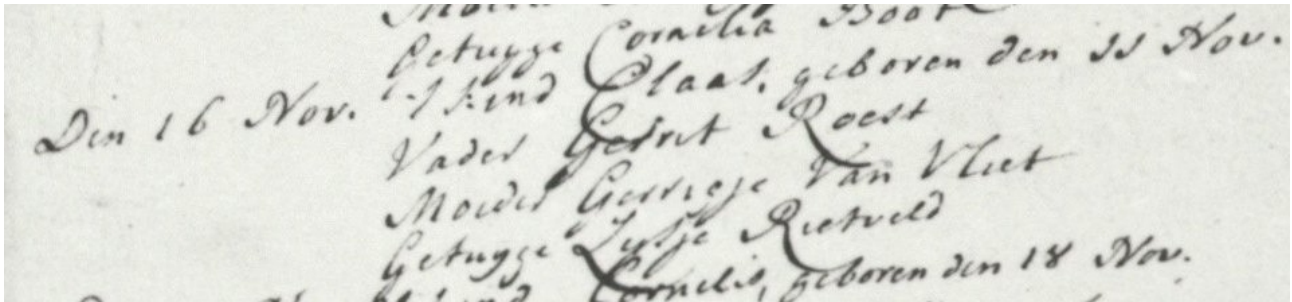 Getugge Cornelia Boot
Den 16 Nov. 't kind Claas, geboren den 11 Nov.
Vader Gerrit Roest
Moeder Gerrigje Van Vliet
Getugge Lijsje Rietveld
kind Cornelis, geboren den 18 Nov.